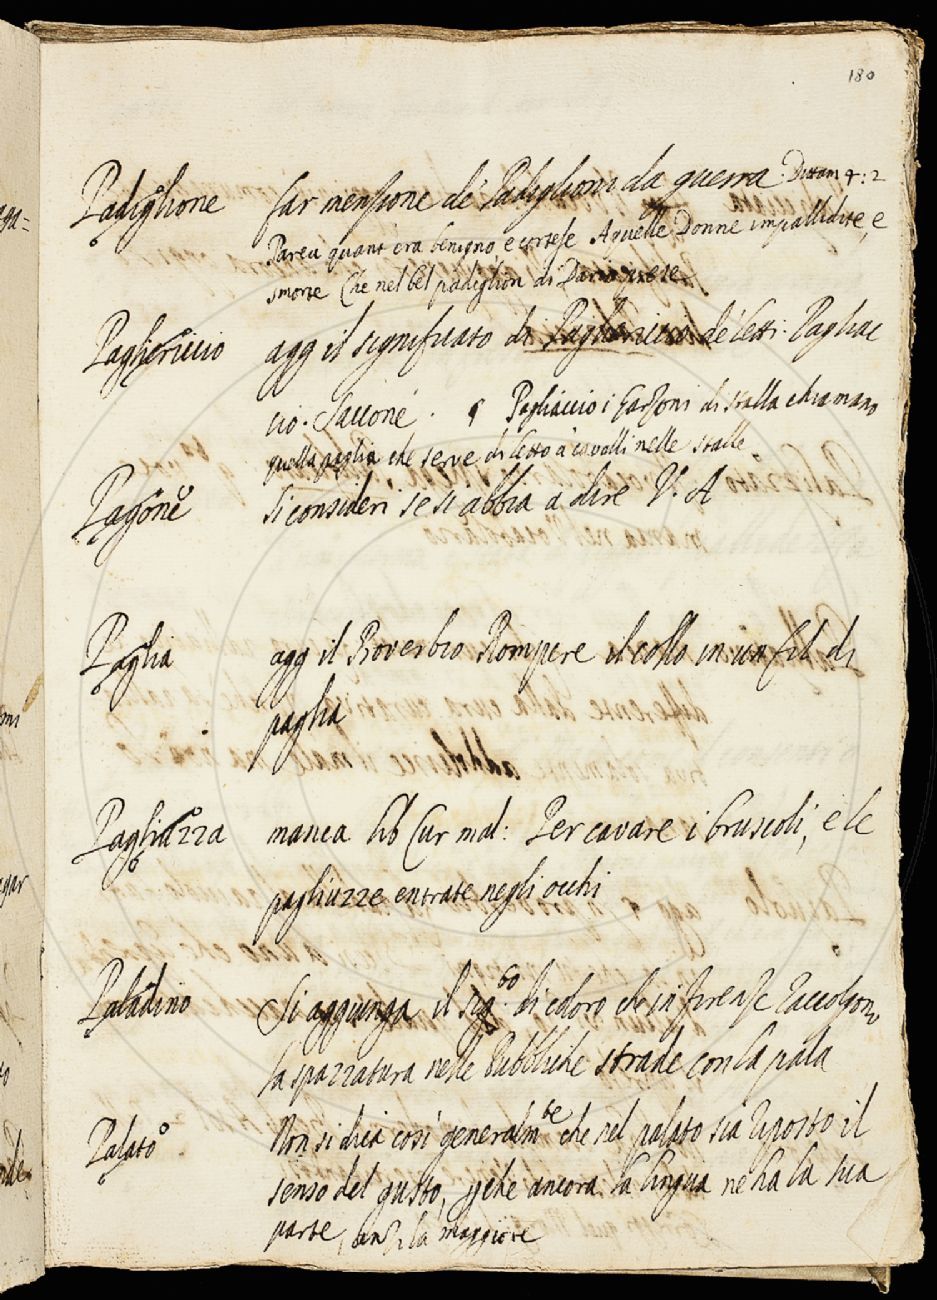 180
Padiglione far menzione de' Padiglioni da guerra. Dittam 4:2
Parea quant' era benigno, e cortese A quelle Donne impallidite, e
smorte Che nel bel padiglion di Dario prese
Pagliericcio agg il significato di Pagliericci de' letti. Pagliac
cio. Saccone. ¶ Pagliaccio i Garzoni di stalla chiamano
quella paglia che serve di letto a' cavalli nelle stalle
Pagone si consideri se si abbia a dire V. A
Paglia agg il Proverbio Rompere il collo in un fil di
paglia
Pagliuzza manca lib Cur mal: Per cavare i bruscoli, e le
pagliuzze entrate negli occhi
Paladino Si aggiunga il sig.to di coloro che in Firenze raccolgono
la spazzatura nelle Pubbliche strade con la pala
Palato Non si dica così generalm.te che nel palato sia riposto il
senso del gusto, pche ancora la lingua ne ha la sua
parte, anzi la maggiore